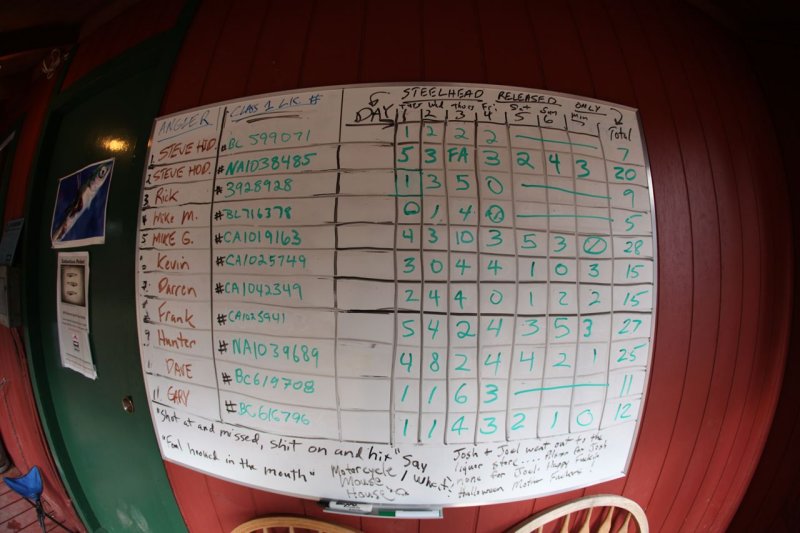 STEELHEAD RELEASED ONLY
ANGLER CLASS 1 LIC # DAY Tues Wed Thurs Fri Sat Sun Mon Total
1 2 3 4 5 6 7
1 STEVE HOD. #BL 599071 1 2 2 2 — 7
2 STEVE HOD. #NA1038485 5 3 FA 3 2 4 3 20
3 Rick #3928928 1 3 5 0 — 9
4 Mike M. #BL716378 0 1 4 0 — 5
5 MIKE G. #CA1019163 4 3 10 3 5 3 0 28
Kevin #CA1025749 3 0 4 4 1 0 3 15
7 Darren #CA1042349 2 4 4 0 1 2 2 15
Frank #CA1025941 5 4 2 4 3 5 3 27
9 Hunter #NA1039689 4 8 2 4 4 2 1 25
DAVE #BC619708 1 1 6 3 — 11
11 GARY #BC616796 1 1 4 3 2 1 0 12
"Shot at and missed, shit on and hit"
"Foul hooked in the mouth"
"Say what"
Motorcycle
Mouse
House
Josh + Joel went out to the
liquor store... for Josh
none for Joel. Happy Fuckin
Halloween Mother Fuckers!